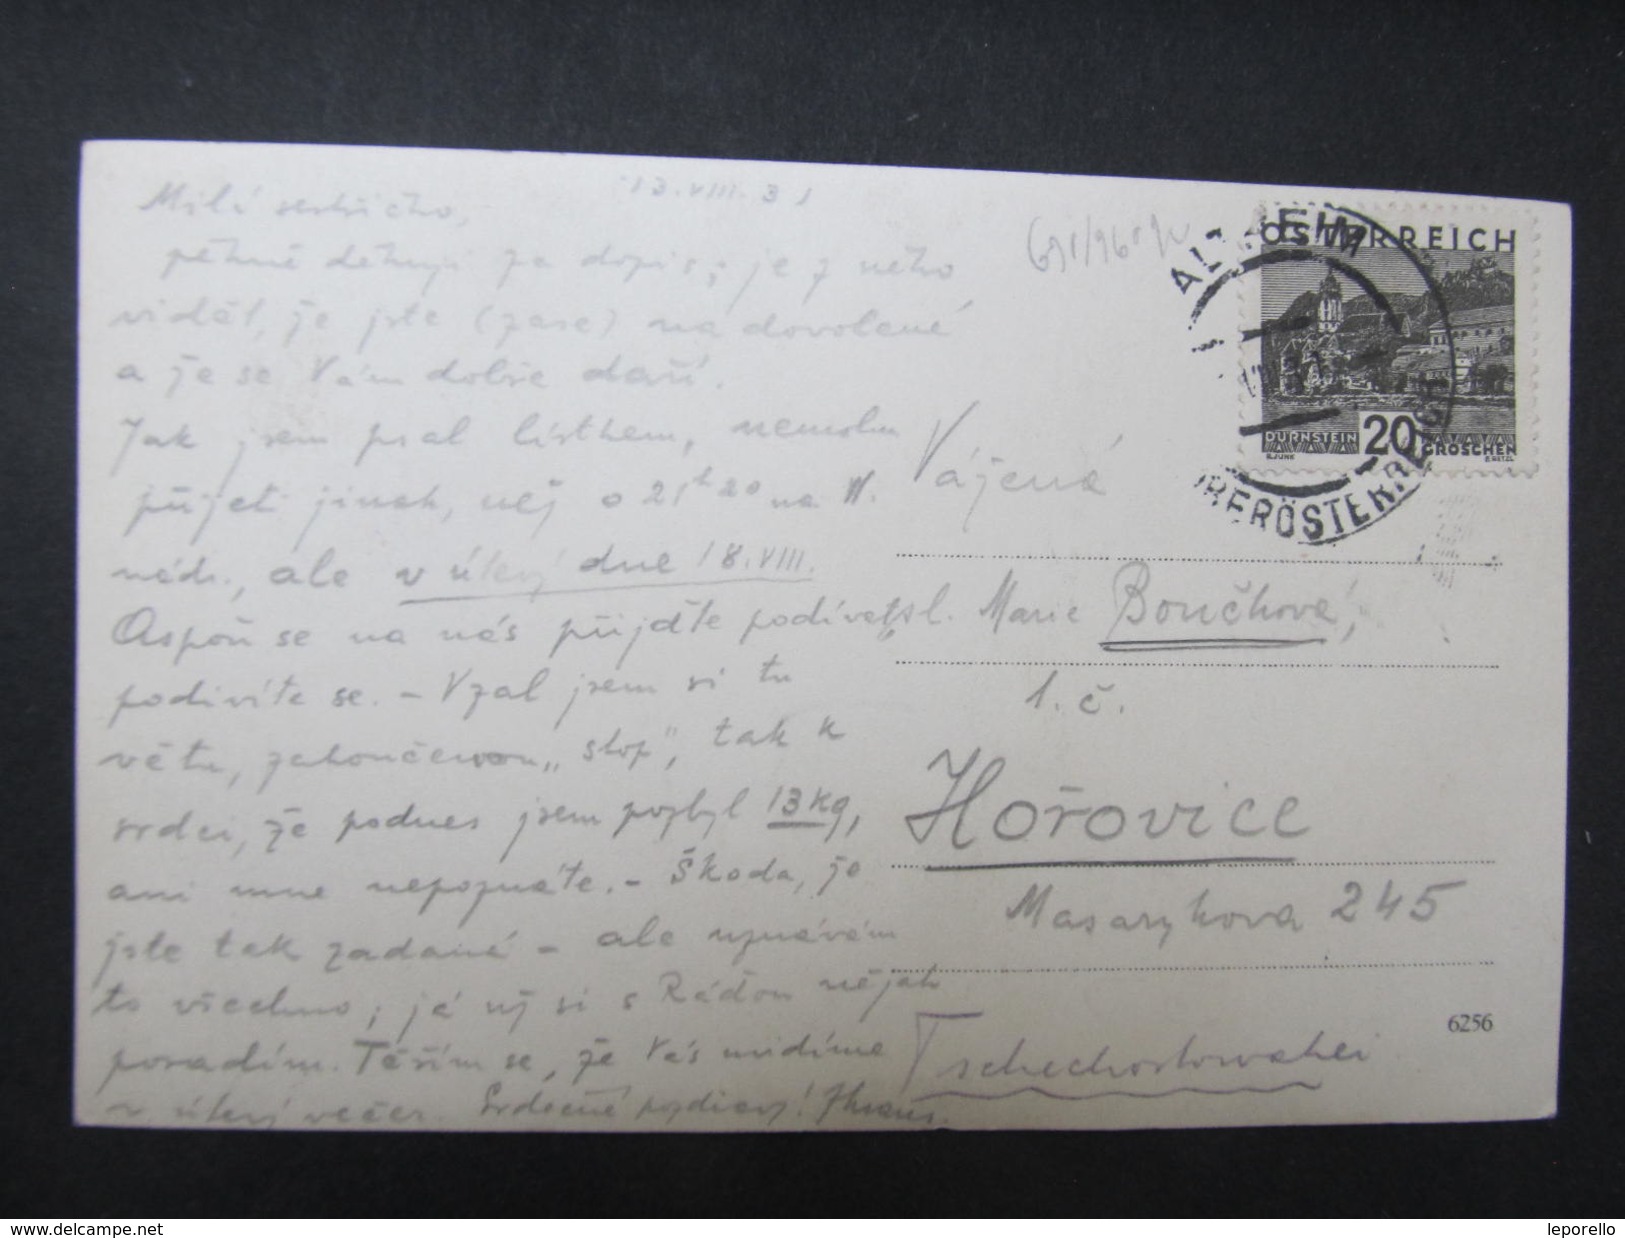 13.VIII.31
Milá sestřičko,
pěkně děkuji za dopis; je z něho
vidět, že jste (zase) na dovolené
a že se Vám dobře daří.
Jak jsem psal lístkem, nemohu
přijeti jinak, než o 21h20 na W.
nádr., ale v úterý dne 18.VIII.
Aspoň se na nás přijďte podívat,
podivíte se. – Vzal jsem si tu
větu, zakončenou „stop", tak k
srdci, že podnes jsem pozbyl 13 kg,
ani mne nepoznáte. – Škoda, že
jste tak zadané – ale uznávám
to všechno; já už si s Ráďou nějak
poradím. Těším se, že Vás uvidíme
v úterý večer. Srdečné pozdravy!
ÖSTERREICH
DÜRNSTEIN 20 GROSCHEN
OBERÖSTERREICH
Vážená
sl. Marie Boučková,
1. č.
Hořovice
Masarykova 245
Tschechoslowakei
6256
www.delcampe.net
leporello